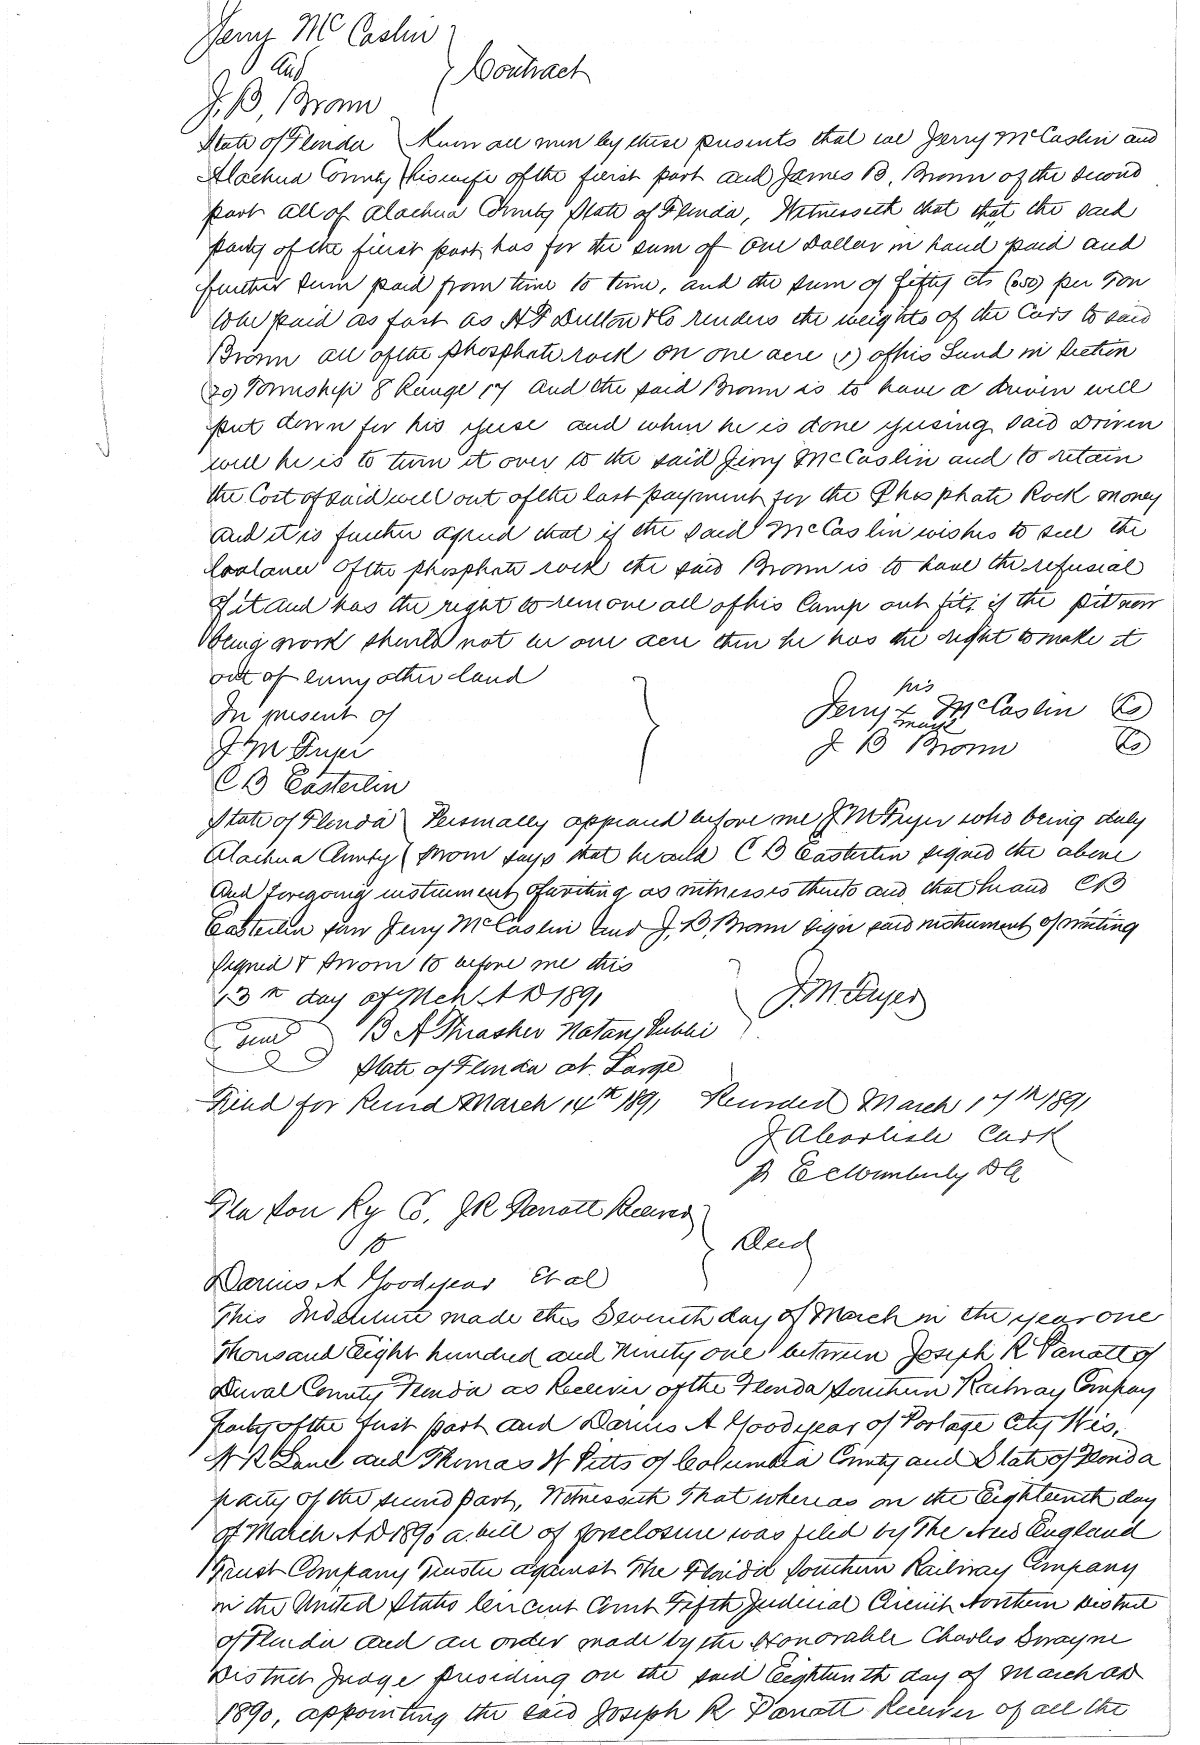 Jerry McCaslin
and
J. B. Brown } Contract
State of Florida } Know all men by these presents that we Jerry McCaslin and
Alachua County } his wife of the fierst part and James B. Brown of the second
part all of Alachua County State of Florida, Witnesseth that that the said
party of the fierst part has for the sum of One Dollar in hand paid and
further sum paid from time to time, and the sum of fifty cts (50) per Ton
to be paid as fast as H F Dutton & Co renders the weights of the Cars to said
Brown all of the phosphate rock on one acre (1) of his Land in Section
(20) Township 8 Range 17 and the said Brown is to have a driven well
put down for his yuse and when he is done yusing said Driven
well he is to turn it over to the said Jerry McCaslin and to retain
the Cost of said well out of the last payment for the Phosphate Rock money
and it is further agreed that if the said McCaslin wishes to sell the
balance of the phosphate rock the said Brown is to have the refusial
of it and has the right to remove all of his Camp out fits, if the pit now
being work should not be one acre then he has the right to make it
out of enny other land
In present of
J M Fryer
C B Easterlin
his
Jerry x McCaslin LS
mark
J B Brown LS
State of Florida } Personally appeared before me J. M Fryer who being duly
Alachua County } sworn says that he and C B Easterlin signed the above
and foregoing instrument of writing as witnesses thereto and that he and C B
Easterlin saw Jerry McCaslin and J. B. Brown sign said instrument of writing
Signed & sworn to before me this
13th day of Mch A D 1891
J. M. Fryer
Seal B A Thrasher Notary Public
State of Florida at Large
Filed for Record March 14th 1891 Recorded March 17th 1891
J A Carlisle Clerk
pr E C Wimberly D C
Fla Sou Ry Co. J R Parrott Receiver
to } Deed
Darius A Goodyear et al
This Indenture made this Seventh day of March in the year one
Thousand Eight hundred and Ninety one between Joseph R Parrott of
Duval County Florida as Receiver of the Florida Southern Railway Compay
party of the first part and Darius A Goodyear of Portage City Wis.
Lane and Thomas W Pitts of Columbia County and State of Florida
party of the second part, Witnesseth That whereas on the Eighteenth day
of March A D 1890 a bill of forsclosure was filed by The New England
Trust Company Trustee against The Florida Southern Railway Company
in the United States Circuit Court Fifth Judicial Circuit Northern District
of Florida and an order made by the Honorable Charles Swayne
District Judge presiding on the said Eighteenth day of March AD
1890, appointing the said Joseph R Parrott Receiver of all the